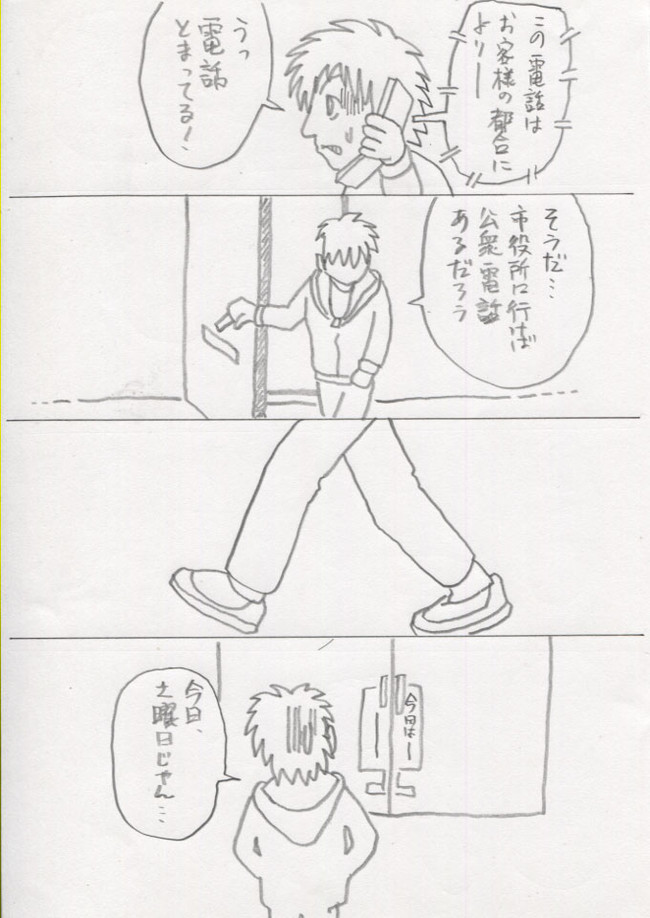 この電話は
お客様の都合に
より――
うっ
電話
とまってる！
そうだ…
市役所に行けば
公衆電話
あるだろう
今日は―
今日、
土曜日じゃん…